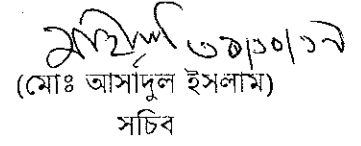 ৩১/১০/১৭
(মোঃ আসাদুল ইসলাম)
সচিব